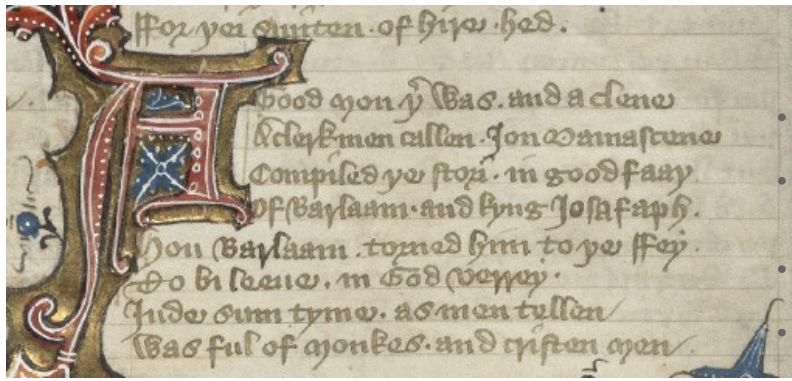 ffor þei smiten · of hire · hed ·
A Good mon þt was · and a clene
A clerk men callen · Jon Damascene
Compiled þe stori · in good faay
Of Barlaam · and kyng Josafaph ·
Hou Barlaam · torned him to þe ffey ·
To bi leeue · in God verrey ·
Inde sum tyme · as men tellen
Was ful of monkes · and cristen men